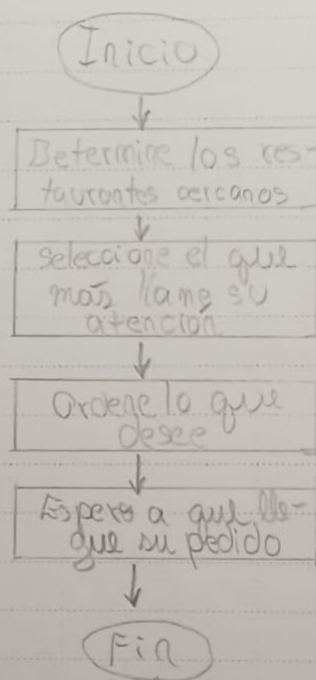 Inicio
Determine los res-
taurantes cercanos
Seleccione el que
más llame su
atención
Ordene lo que
desee
Espere a que lle-
gue su pedido
Fin